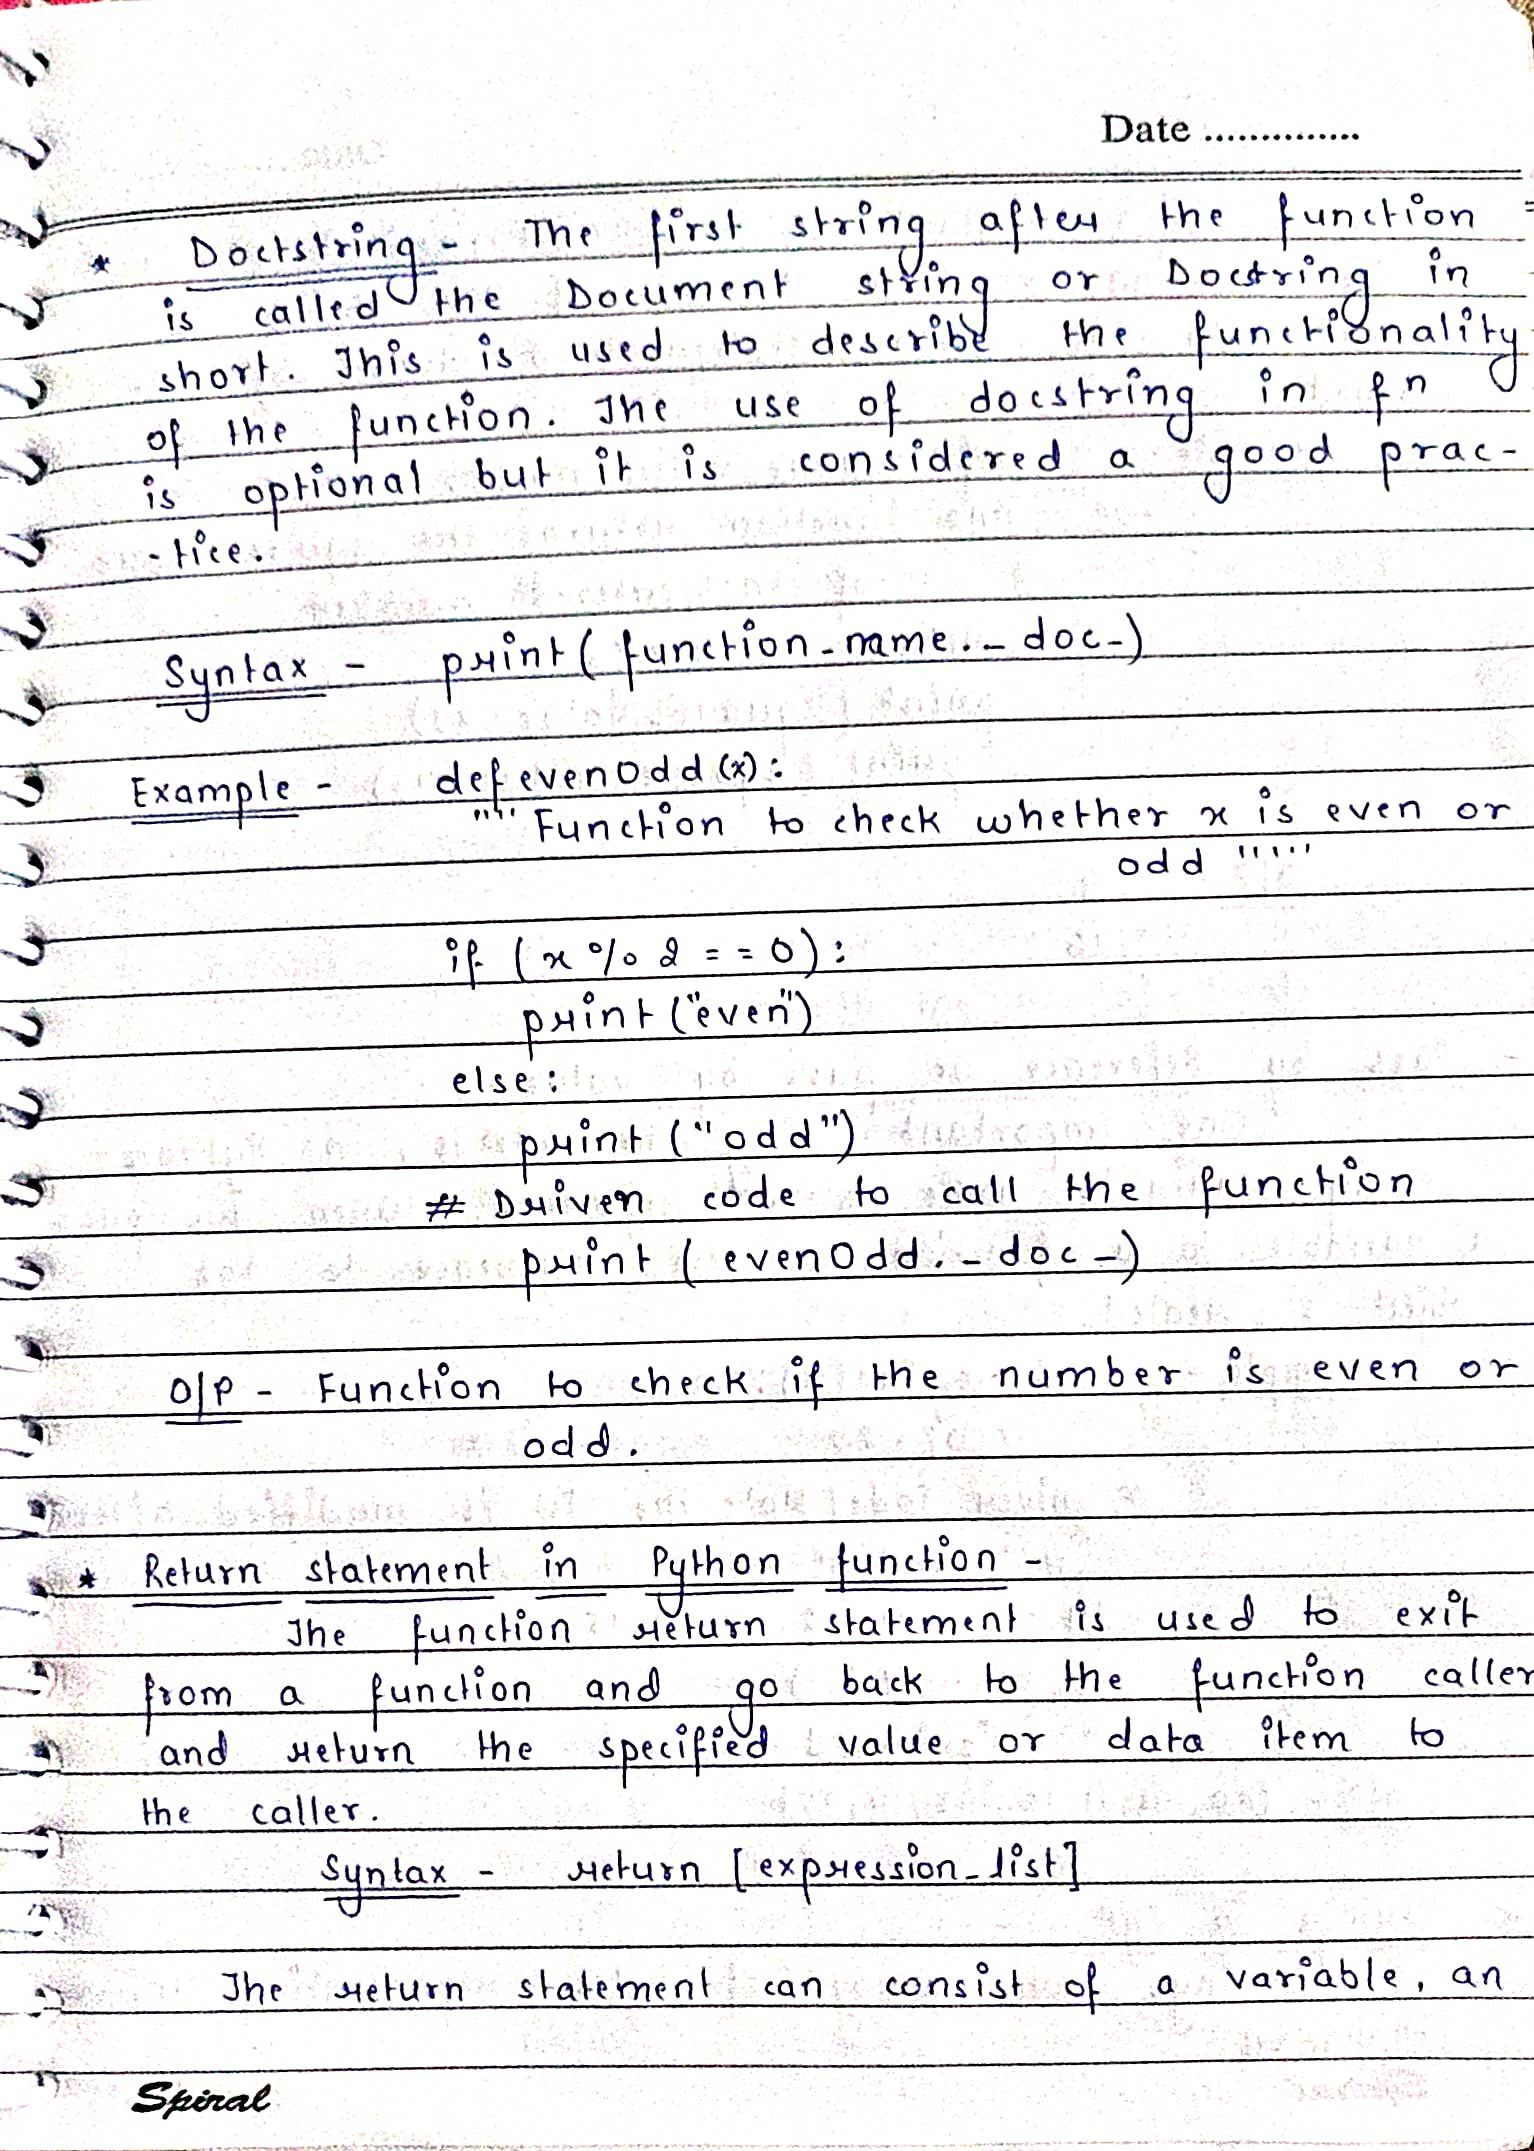 Date ..............
* Doctstring - The first string after the function
is called the Document string or Docstring in
short. This is used to describe the functionality
of the function. The use of docstring in fn
is optional but it is considered a good prac-
-tice.
Syntax - print( function_name._doc_)
Example - def evenOdd (x) :
""" Function to check whether x is even or
odd """
if (x % 2 == 0) :
print ("even")
else :
print ("odd")
# Driven code to call the function
print ( evenOdd._doc_)
O/P - Function to check if the number is even or
odd.
* Return statement in Python function -
The function return statement is used to exit
from a function and go back to the function caller
and return the specified value or data item to
the caller.
Syntax - return [expression_list]
The return statement can consist of a variable, an
Spiral